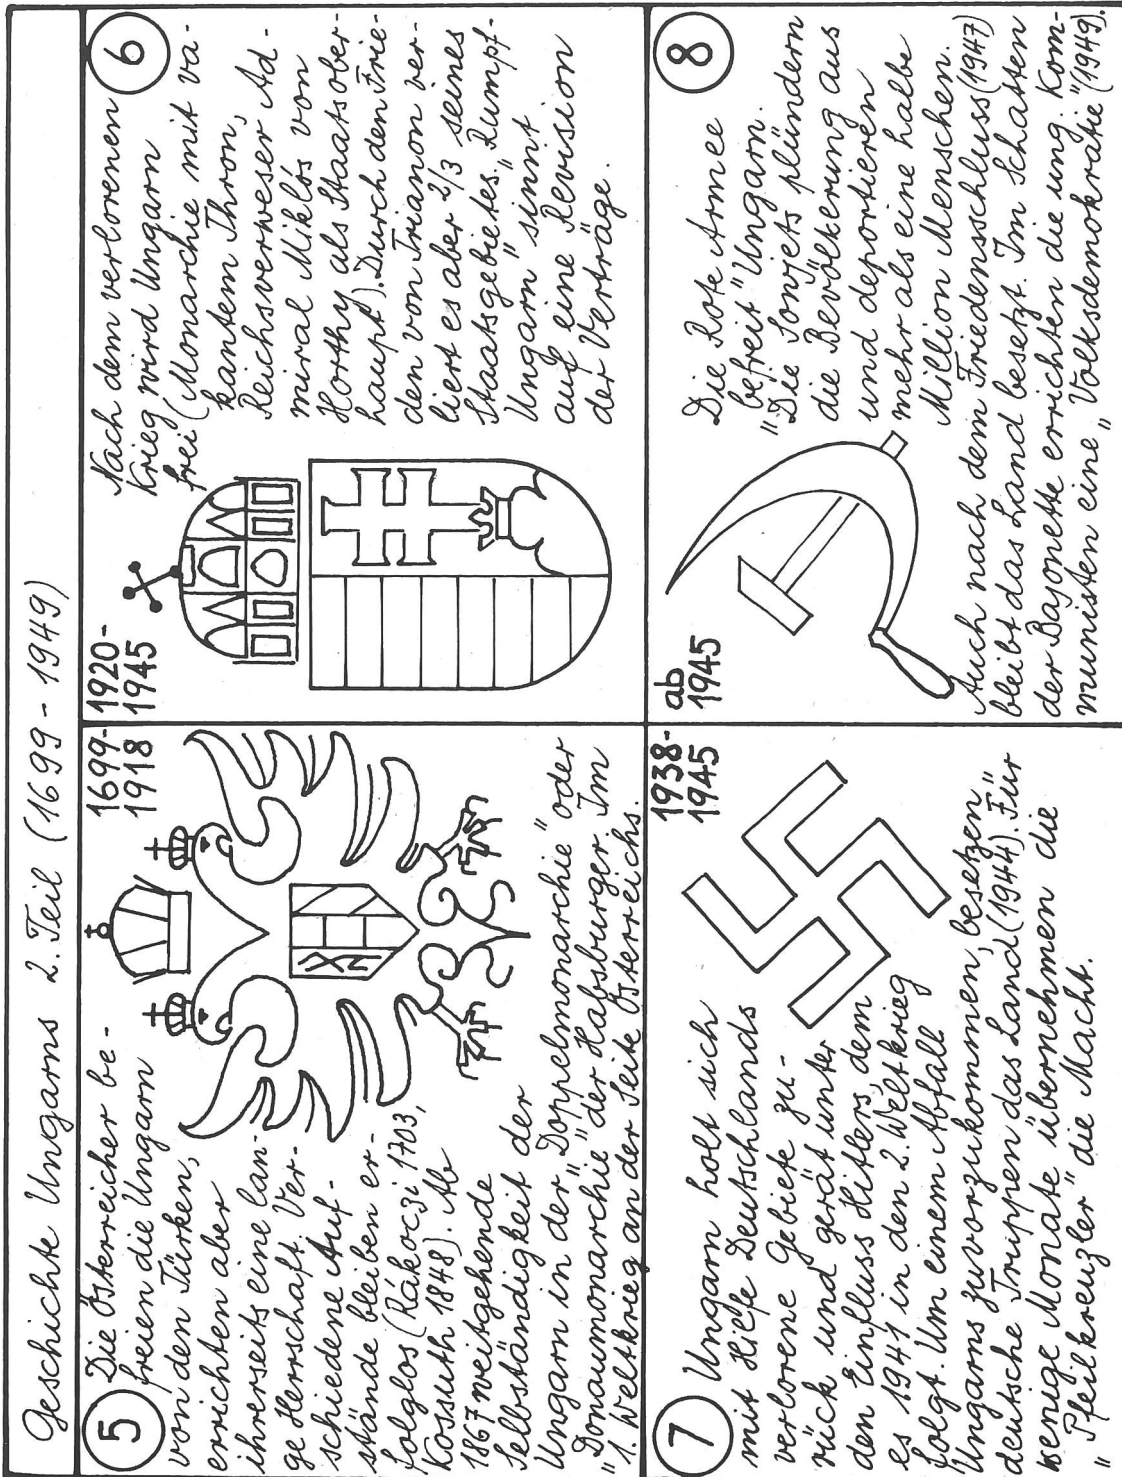 Geschichte Ungarns 2. Teil (1699 - 1949)
5
1699-
1918
Die Österreicher be-
freien die Ungarn
von den Türken,
errichten aber
ihrerseits eine lan-
ge Herrschaft. Ver-
schiedene Auf-
stände bleiben er-
folglos (Rákoczi 1703,
Kossuth 1848). Ab
1867 weitgehende
Selbständigkeit der
Ungarn in der "Doppelmonarchie" oder
"Donaumonarchie" der Habsburger. Im
1. Weltkrieg an der Seite Österreichs.
1920-
1945
6
Nach dem verlorenen
Krieg wird Ungarn
frei (Monarchie mit va-
kantem Thron,
Reichsverweser Ad-
miral Miklós von
Horthy als Staatsober-
haupt). Durch den Frie-
den von Trianon ver-
liert es aber 2/3 seines
Staatsgebietes. "Rumpf-
Ungarn" sinnt
auf eine Revision
der Verträge.
7
1938-
1945
Ungarn holt sich
mit Hilfe Deutschlands
verlorene Gebiete zu-
rück und gerät unter
den Einfluss Hitlers, dem
es 1941 in den 2. Weltkrieg
folgt. Um einem Abfall
Ungarns zuvorzukommen, "besetzen"
deutsche Truppen das Land (1944). Für
wenige Monate übernehmen die
"Pfeilkreuzler" die Macht.
ab
1945
8
Die Rote Armee
"befreit" Ungarn.
Die Sowjets plündern
die Bevölkerung aus
und deportieren
mehr als eine halbe
Million Menschen.
Auch nach dem Friedensschluss (1947)
bleibt das Land besetzt. Im Schatten
der Bajonette errichten die ung. Kom-
munisten eine "Volksdemokratie" (1949).